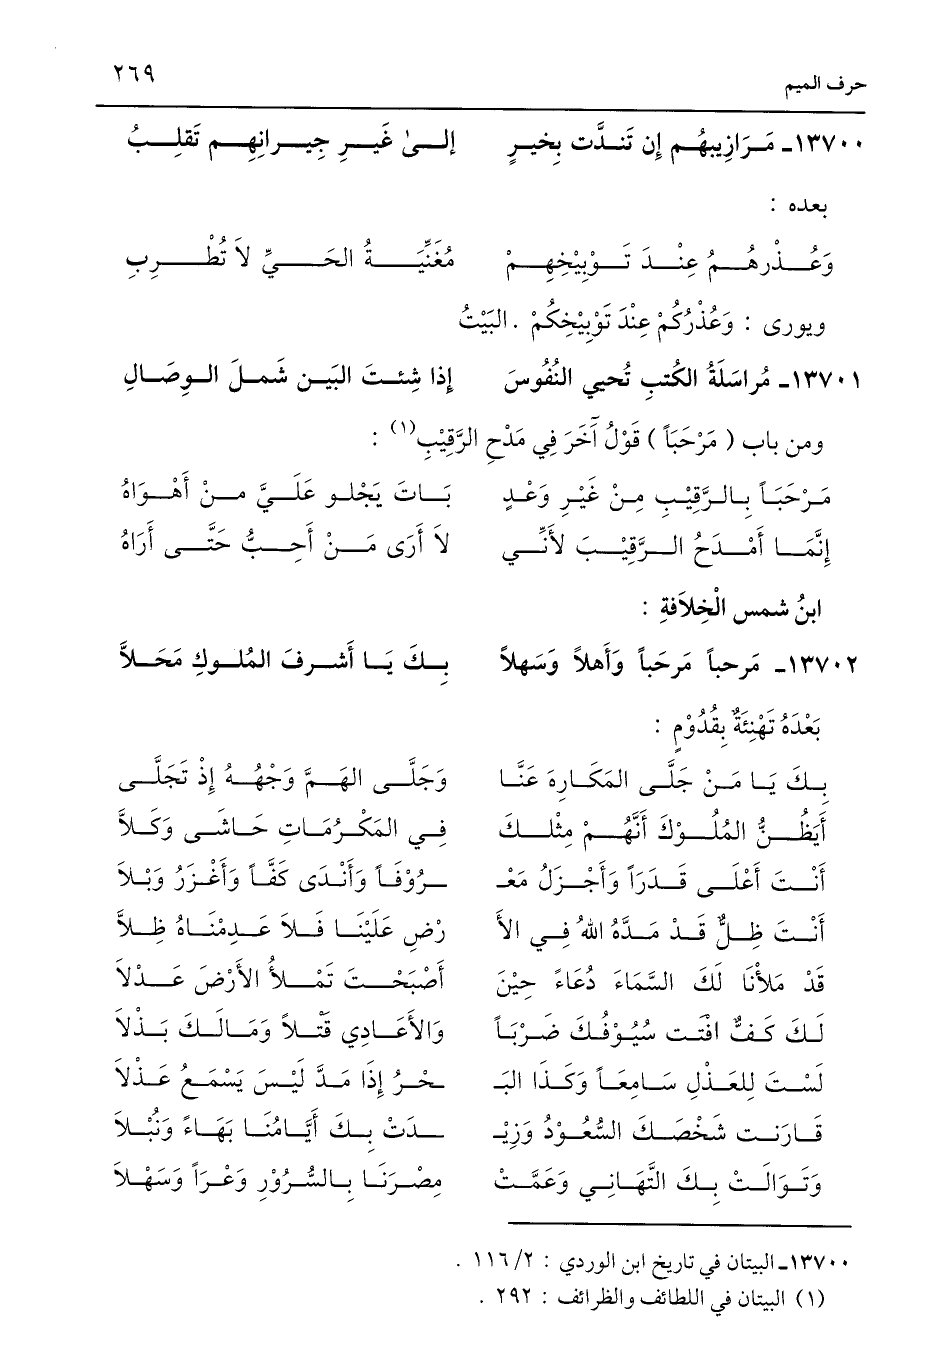 حرف الميم ٢٦٩
١٣٧٠٠ـ مَرَازِيبهُم إن تَندَّت بِخيرٍ إلىٰ غَيرِ جِيرانِهِم تَقلِبُ
بعده :
وَعُذْرهُمُ عِنْدَ تَوْبِيْخِهِمْ مُغَنِّيَةُ الحَيِّ لاَ تُطْرِبِ
ويورى : وَعُذْرُكُمْ عِنْدَ تَوْبِيْخِكُمْ . البَيْتُ
١٣٧٠١ـ مُراسَلَةُ الكتبِ تُحيي النُفُوسَ إذا شِئتَ البَينِ شَملَ الوِصَالِ
ومن باب ( مَرْحَبَاً ) قَوْلُ آخَرَ فِي مَدْحِ الرَّقِيْبِ(١) :
مَرْحَبَاً بِالرَّقِيْبِ مِنْ غَيْرِ وَعْدٍ بَاتَ يَجْلو عَلَيَّ مِنْ أهْوَاهُ
إنَّمَا أمْدَحُ الرَّقِيْبَ لأنِّي لاَ أرَى مَنْ أحِبُّ حَتَّى أرَاهُ
ابنُ شمسِ الْخِلاَفَةِ :
١٣٧٠٢ـ مَرحباً مَرحَباً وَأهلاً وَسَهلاً بِكَ يَا أشرفَ المُلوكِ مَحَلاًّ
بَعْدَهُ تَهْنِئَةٌ بِقُدُوْمٍ :
بِكَ يَا مَنْ جَلَّى المَكَارِهَ عَنَّا وَجَلَّى الهَمَّ وَجْهُهُ إذْ تَجَلَّى
أيَظُنُّ المُلُوْكَ أنَّهُمْ مِثْلكَ فِي المَكْرُمَاتِ حَاشَى وَكَلاَّ
أنْتَ أعْلَى قَدَرَاً وَأجْزَلُ مَعْـ ـرُوْفَاً وَأنْدَى كَفَّاً وَأغْزَرُ وَبْلاَ
أنْتَ ظِلٌّ قَدْ مَدَّهُ اللهُ فِي الأ رْضِ عَلَيْنَا فَلاَ عَدِمْنَاهُ ظِلاًّ
قَدْ مَلأنَا لَكَ السَّمَاءَ دُعَاءً حِيْنَ أصْبَحْتَ تَمْلأُ الأرْضَ عَدْلاَ
لَكَ كَفٌّ افْتَت سُيُوْفُكَ ضَرْبَاً وَالأعَادِي قَتْلاً وَمَالَكَ بَذْلاَ
لَسْتَ لِلعَذْلِ سَامِعَاً وَكَذَا البَـ ـحْرُ إذَا مَدَّ لَيْسَ يَسْمَعُ عَذْلاَ
قَارَنَت شَخْصَكَ السُّعُوْدُ وَزِيْـ ـدَتْ بِكَ أيَّامُنَا بَهَاءً وَنُبْلاَ
وَتَوَالَتْ بِكَ التَّهَانِي وَعَمَّتْ مِصْرَنَا بِالسُّرُوْرِ وَعْرَاً وَسَهْلاَ
١٣٧٠٠ـ البيتان في تاريخ ابن الوردي : ٢/ ١١٦ .
(١) البيتان في اللطائف والظرائف : ٢٩٢ .